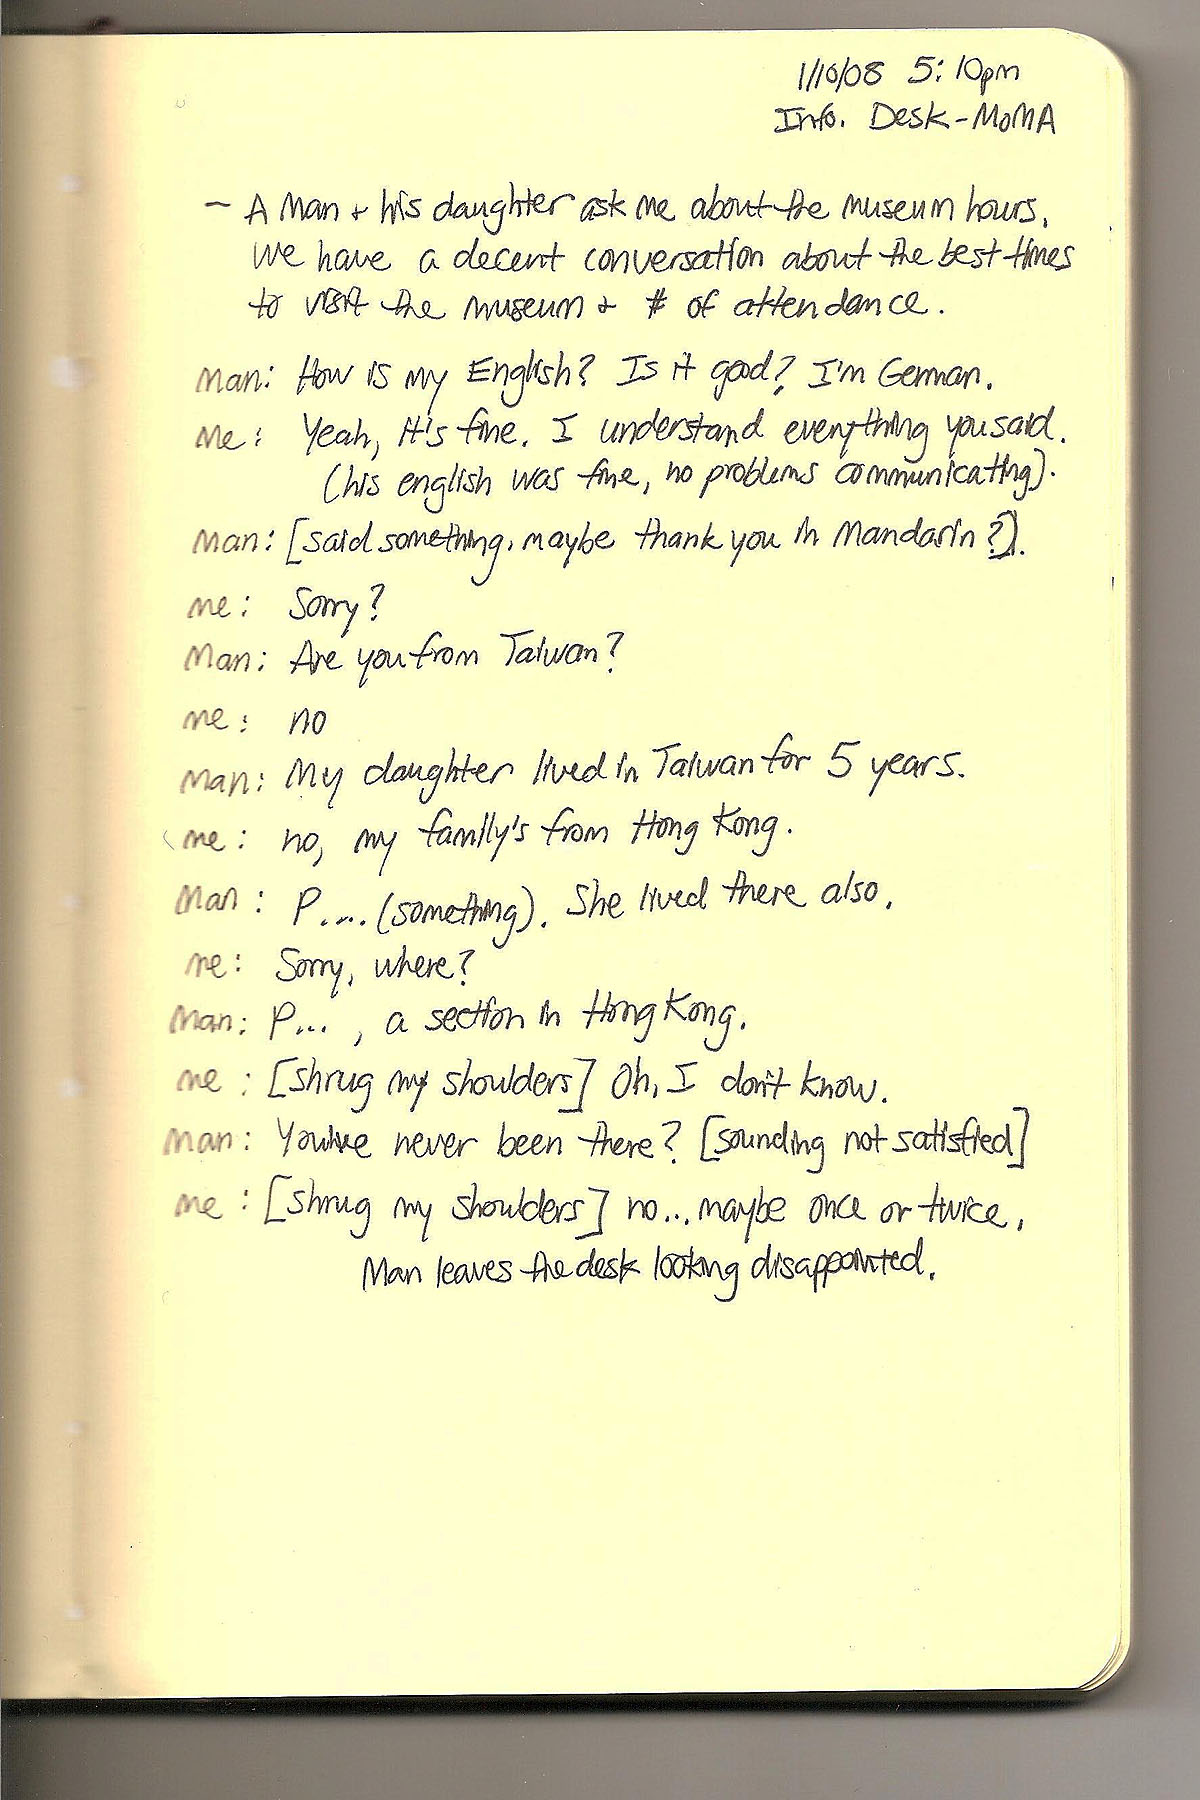 1/10/08 5:10pm
Info. Desk - MoMA
- A Man + his daughter ask me about the museum hours.
We have a decent conversation about the best times
to visit the museum + # of attendance.
Man: How is my English? Is it good? I'm German.
Me: Yeah, it's fine. I understand everything you said.
(his english was fine, no problems communicating).
Man: [said something, maybe thank you in Mandarin?].
me: Sorry?
Man: Are you from Taiwan?
me: no
Man: My daughter lived in Taiwan for 5 years.
me: no, my family's from Hong Kong.
Man: P.... (something). She lived there also.
me: Sorry, where?
Man: P... , a section in Hong Kong.
me: [shrug my shoulders] Oh, I don't know.
Man: You've never been there? [sounding not satisfied]
me: [shrug my shoulders] no... maybe once or twice.
Man leaves the desk looking disappointed.